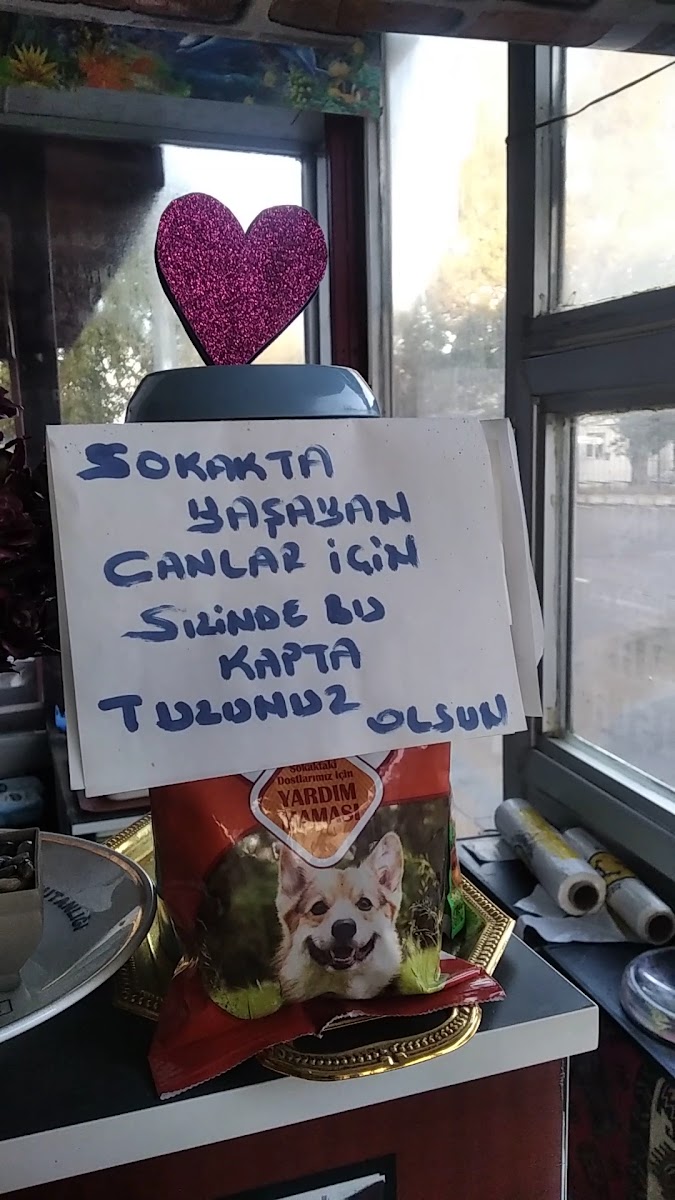 SOKAKTA
YAŞAYAN
CANLAR İÇİN
SİZİNDE BU
KAPTA
TUZUNUZ OLSUN
Sokaktaki
Dostlarımız için
YARDIM
MAMASI